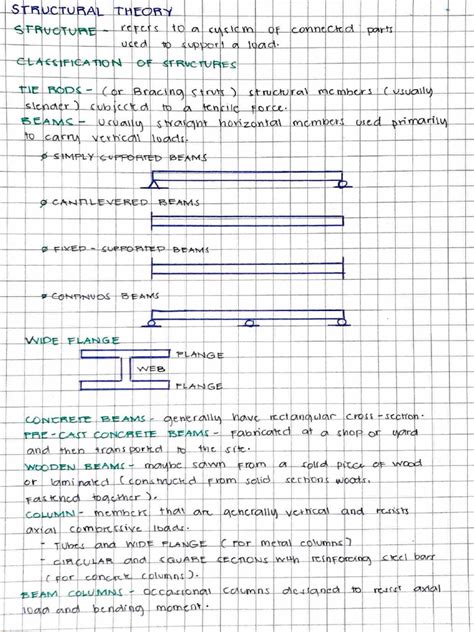 STRUCTURAL THEORY
STRUCTURE - refers to a system of connected parts
used to support a load.
CLASSIFICATION OF STRUCTURES
TIE RODS - (or Bracing Struts) structural members (usually
slender) subjected to a tencile force.
BEAMS - usually straight horizontal members used primarily
to carry vertical loads.
SIMPLY SUPPORTED BEAMS
CANTILEVERED BEAMS
FIXED - SUPPORTED BEAMS
CONTINUOS BEAMS
WIDE FLANGE
FLANGE
WEB
FLANGE
CONCRETE BEAMS - generally have rectangular cross-section.
PRE-CAST CONCRETE BEAMS - Fabricated at a shop or yard
and then transported to the site.
WOODEN BEAMS - maybe sawn from a solid piece of wood
or laminated (constructed from solid sections woods.
fastened together).
COLUMN - members that are generally vertical and resists
axial compressive loads.
- Tubes and WIDE FLANGE (for metal columns)
- CIRCULAR and SQUARE SECTIONS with reinforcing steel bars
(for concrete columns).
BEAM COLUMNS - occasional columns designed to resist axial
load and bending moment.